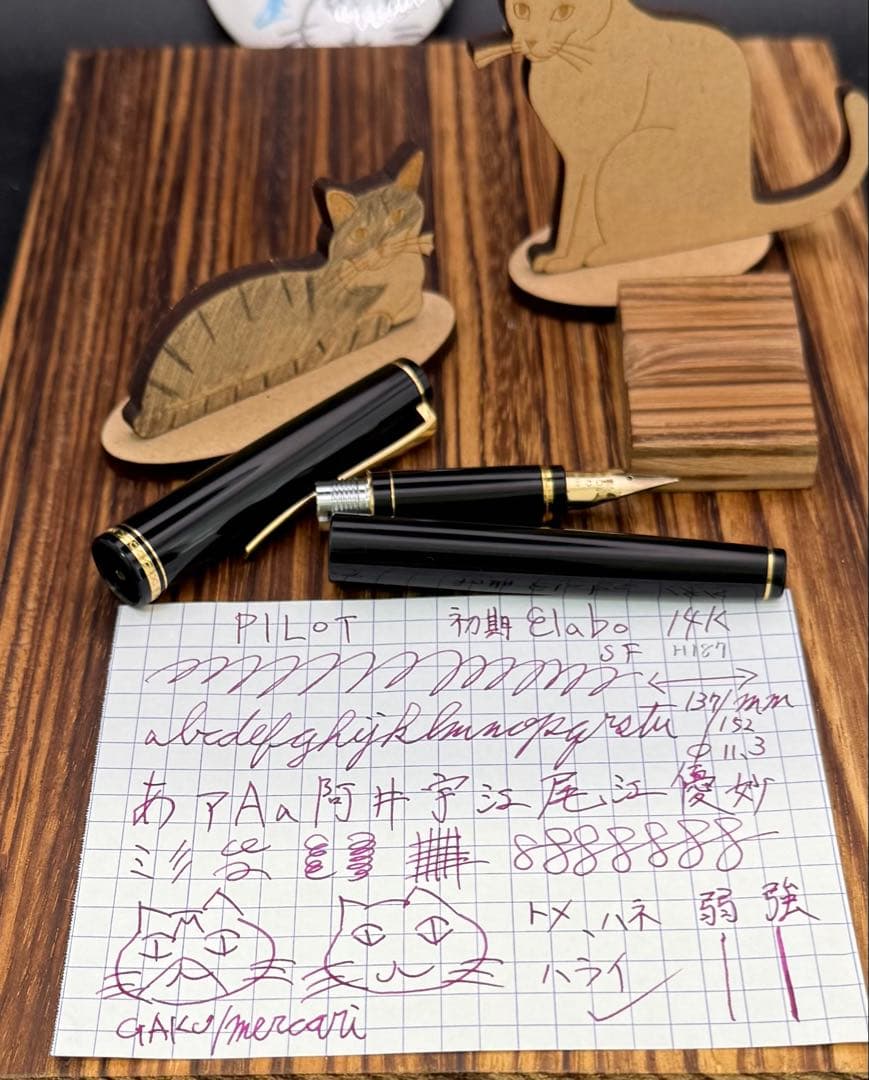 PILOT 初期 Elabo 14K
SF H187
137/mm
abcdefghijklmnopqrstu /152
φ 11.3
あ ア A a 阿 井 宇 江 尾 江 優 妙
8 8 8 8 8 8 8
トメ、ハネ 弱 強
ハライ
GAKU/mercari